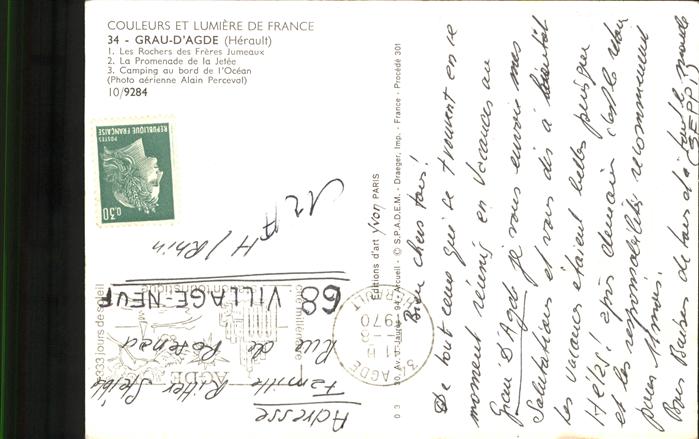 COULEURS ET LUMIÈRE DE FRANCE
34 - GRAU-D'AGDE (Hérault)
1. Les Rochers des Frères Jumeaux
2. La Promenade de la Jetée
3. Camping au bord de l'Océan
(Photo aérienne Alain Perceval)
10/9284
REPUBLIQUE FRANÇAISE
POSTES
0,30
Editions d'art Yvon PARIS
Arcueil - © S.P.A.D.E.M. - Draeger, Imp. - France - Procédé 301
333 jours de soleil
AGDE
34 AGDE
1970
HERAULT
Adresse
Famille Ritter
Rue de Rosenau
68 VILLAGE-NEUF
H/Rhin
Bien chers tous!
De tout ceux qui se trouvent en ce
moment réunis en Vacances au
Grau D'Agde je vous envoie mes
Salutations et vous dis à bientôt
les vacances étaient belles puisque
Hélas! après demain c'est le retour
et les responsabilités recommencent
pour 11 mois.
Bons Baisers de tous et à tout le monde
SEPPI